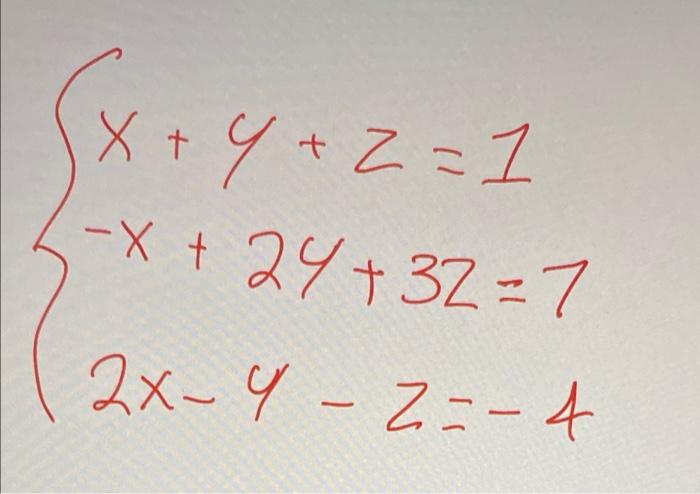 x + y + z = 1
-x + 2y + 3z = 7
2x - y - z = - 4